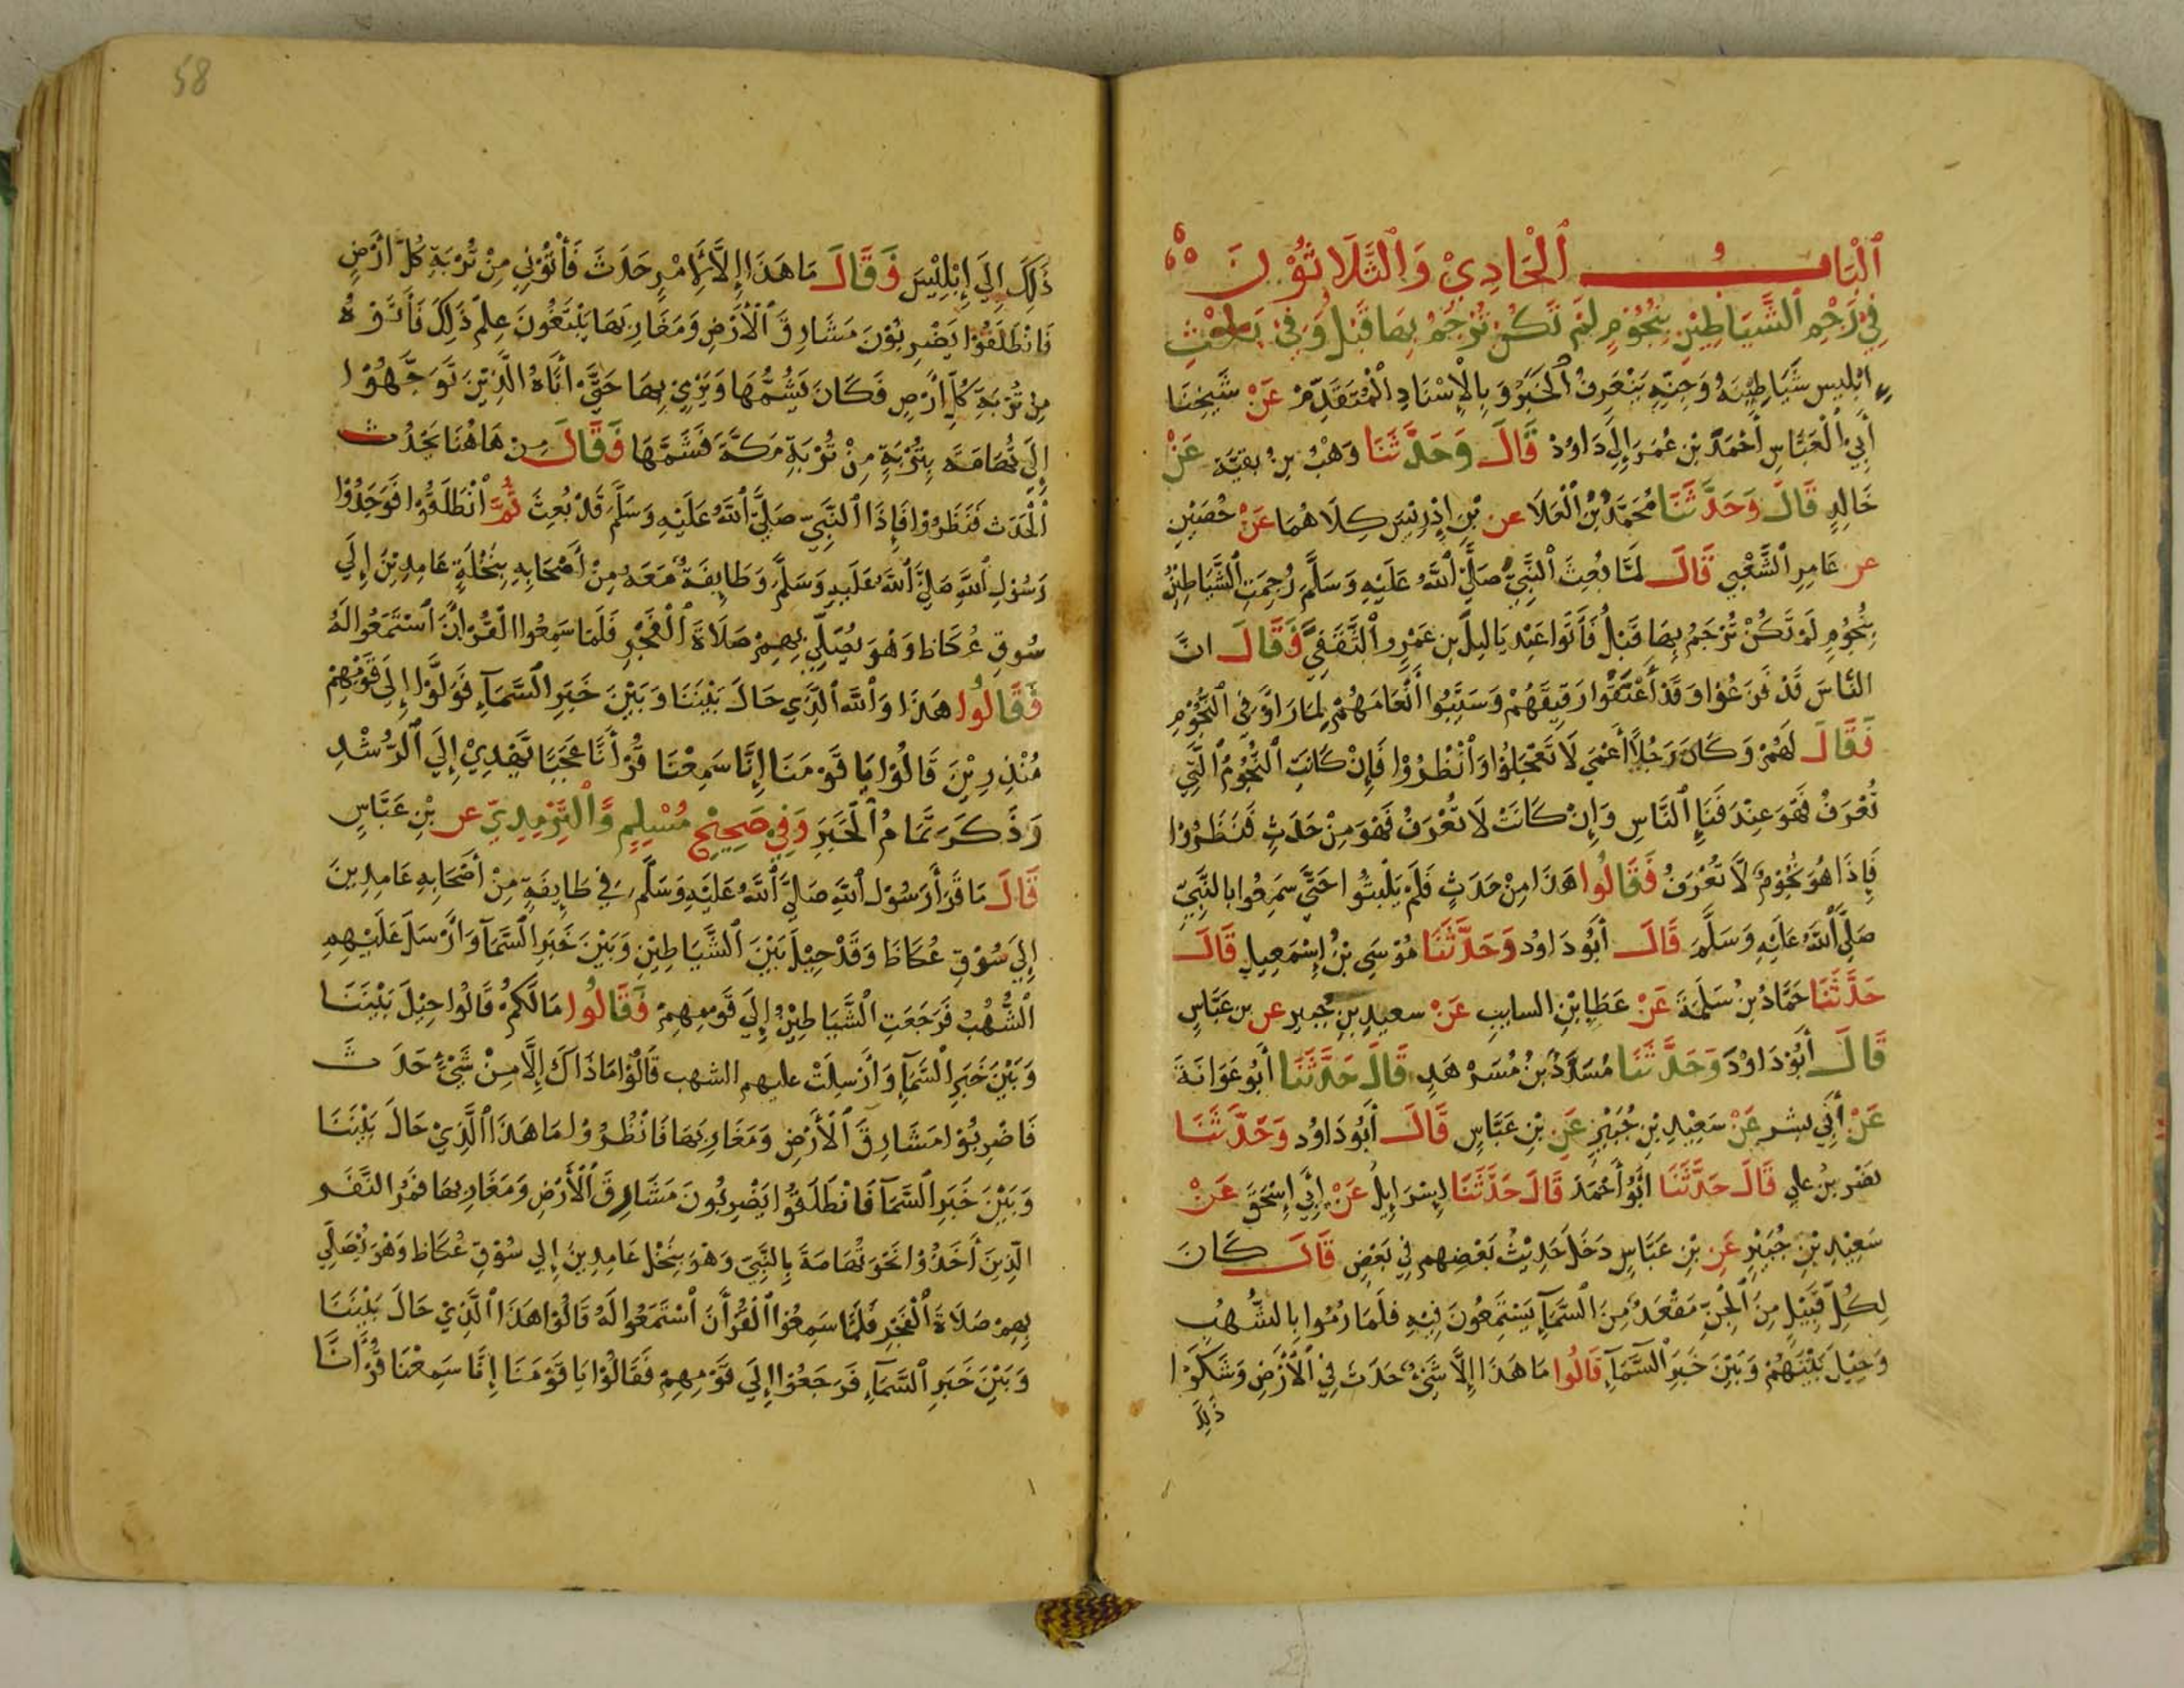 اَلْبَابُ اَلْحَادِيْ وَالثَّلَاثُوْنَ
فِيْ رَجْمِ الشَّيَاطِيْنِ بِنُجُوْمٍ لَمْ تَكُنْ تُرْجَمُ بِهَا قَبْلُ وَفِيْ بَعْثِ
ابليس شَيَاطِيْنَهُ وَجِنِّهِ يَتَعَرَفُ الْخَبَرُ وَبِالْإِسْنَادِ الْمُتَقَدِّمْ عَنْ شَيْخِنَا
أَبِيْ الْعَبَّاسِ أَحْمَدَ بْنِ عُمَرَ إِلَى دَاوُدْ قَالَ وَحَدَّثَنَا وَهْبُ بِنُ بقيَّة عَنْ
خَالِدٍ قَالَ وَحَدَّثَنَا مُحَمَّدُ بْنُ الْعَلَا عن بْنِ اِدْرِيْسَ كِلَاهُمَا عَنْ حُصَيْنٍ
عن عَامِرِ الشَّعْبِي قَالَ لَمَّا بُعِثَ النَّبِيُّ صَلَّى اللّٰهُ عَلَيْهِ وَسَلَّمَ رُجِمَتِ الشَّيَاطِيْنُ
بِنُجُوُمٍ لَمْ تَكُنْ تُرْجَمُ بِهَا قَبْلُ فَأَتَوا عَبْد يَا لِيلَ بن عَمْرِو الثَّقَفِيَّ فَقَالَ انَّ
النَّاسَ قَدْ فَزَعُوْا وَقَدْ أَعْتَقُوْا رَقِيقَهُمْ وَسَيَّبُوا أَنْعَامَهُمْ لِمَا رَاَوْ فِي النُّجُوْمِ
فَقَالَ لَهُمْ وَكَانَ رَجُلًا أَعْمَى لَا تَعْجَلُوْا وَانْظُرُوْا فَإِنْ كَانَتِ النُّجُوْمُ الَّتِي
تُعْرَفُ فَهْوَ عِنْدَ فَنَاءِ النَّاسِ وَإِنْ كَانَتْ لَا تُعْرَفُ فَهْوَ مِنْ حَدَثٍ فَنَظَرُوْا
فَإِذَا هُوَ نُجُوْمٌ لَا تُعْرَفُ فَقَالُوا هَذَا مِنْ حَدَثٍ فَلَمْ يَلْبَثُوا حَتَّى سَمِعُوا بالنَّبِيِّ
صَلَّى اللّٰهُ عَلَيْهِ وَسَلَّمَ قَالَ أَبُو دَاوُد وَحَدَّثَنَا مُوْسَى بْنُ إِسْمَعِيلٍ قَالَ
حَدَّثَنَا حَمَّادُ بْنُ سَلَمَةَ عَنْ عَطَاِ بْنِ السايبِ عَنْ سعيدِ بنِ جُبيرٍ عن بن عَبَّاسٍ
قَالَ أَبُوْ دَاوُدْ وَحَدَّثَنَا مُسَدَّدُ بْنُ مُسَرْهَدٍ قَالَ حَدَّثَنَا أَبُو عَوَانَةَ
عَنْ أَبِي بشر عَنْ سَعِيْدِ بْنِ جُبَيْرٍ عَنِ بْنِ عَبَّاسٍ قَالَ أَبُو دَاوُد وَحَدَّثَنَا
نصْرُ بْنُ علي قَالَ حَدَّثَنَا اَبُوْ أَحْمَدْ قَالَ حَدَّثَنَا اِسْرَايِلُ عَنْ اِبِي إِسْحَقَ عَنْ
سَعِيْدِ بْنِ جُبَيْرٍ عَنِ بْنِ عَبَّاسٍ دَخَلَ حَدِيْثُ بَعْضِهِمِ فِي بَعْضٍ قَالَ كَانَ
لِكُلِّ قَبَيْلٍ مِنَ الْجِنِّ مَقْعَدٌ مِنَ السَّمَآءِ يَسْتَمِعُونَ فِيْهِ فَلَمَا رُمُوا بِالشُّهُبِ
وَحِيْلَ بَيْنَهُمْ وَبَيْنَ خَبَرِ السَّمَآءِ قَالُوا مَا هَذَا إِلَّا شَيْءٌ حَدَثَ فِيْ الْأَرْضِ وَشَكَوْا
ذَلِكَ
58
ذَلِكَ اِلَى إِبْلِيْسَ فَقَالَ مَا هَذَا إِلَّا لِأَمْرٍ حَدَثَ فَأْتُوْنِي مِنْ تُرْبَةِ كُلِّ أَرْضٍ
فَانْطَلَقُوْا يَضْرِبُوْنَ مَشَارِقَ الْأَرْضِ وَمَغَارِبَهَا يَبْتَغُونَ عِلْمَ ذَلِكَ فَأَتَوْهُ
مِنْ تُرْبَةِ كُلِّ أَرْضٍ فَكَانَ يَشُمُّهَا وَيَرْمِيْ بِهَا حَتَّى أَتَاهُ الَّذِيْنَ تَوَجَّهُوْا
إِلَى تُهَامَة بِتُرْبَةٍ مِنْ تُرْبَةِ مَكَّةَ فَشَمَّهَا فَقَالَ مِنْ هَاهُنَا يَحْدُث
اَلْحَدَث فَنَظَرُوْا فَإِذَا النَّبِيّ صَلَّى اللّٰهُ عَلَيْهِ وَسَلَّمَ قَدْ بُعِثَ ثُمَّ انْطَلَقُوْا فَوَجَدُوْا
رَسُوْلِ اللّٰهِ صَلَّى اللّٰهُ عَلَيهِ وَسَلَّمَ وَطَايِفَةٌ مَعَهُ مِنْ أَصْحَابِهِ بِنَخْلَةٍ عَامِدِيْنَ إِلَى
سُوقِ عُكَاظ وَهُوَ يُصَلِّي بِهِمْ صَلَاةَ الْفَجْرِ فَلَمَا سَمِعُوا الْقُرْانَ اَسْتَمَعُوا لَهُ
فَقَالُوا هَذَا وَاللّٰه الَّذِي حَالَ بَيْنَنَا وَبَيْنَ خَبَرِ السَّمَآءِ فَوَلَّوْا إِلَى قَوْمِهِمْ
مُنْذِرِيْنَ قَالُوْا يَا قَوْمَنَا إِنَّا سَمِعْنَا قُرْأَنَّا عَجَبًا يَهْدِيْ إِلَى الرُّشْدِ
وَذَكَرَ تَمَامُ الْخَبَرَ وَفِيْ صَحِيْحِ مُسْلِمٍ وَالْتِرْمِدِيّ عن بْنِ عَبَّاسٍ
قَالَ مَا قَرَأَ رَسُوْل اللّٰهِ صَلَّى اللّٰهُ عَلَيْهِ وَسَلَّمَ فِي طَايِفَةٍ مِنْ أَصْحَابِهِ عَامِدِينَ
إِلَى سُوْقِ عُكَاظَ وَقَدْ حِيْلَ بَيْنَ الشَّيَاطِيْنِ وَبَيْنَ خَبَرِ السَّمَآ وَاَرْسَلَ عَلَيْهِمِ
الشُّهُبْ فَرَجَعَتِ الشَّيَاطِيْنُ إِلَى قَوْمِهِمْ فَقَالُوا مَا لَكُمْ قَالُوا حِيْلَ بَيْنَنَا
وَبَيْنَ خَبَرِ السَّمَآءِ وَأَرْسِلَتْ عليهم الشهب قَالُوْا مَا ذَاكَ إِلَّا مِنْ شَيْءٍ حَدَثَ
فَاضْرِبُوْا مَشَارِقَ الْأَرْضِ وَمَغَارِبَهَا فَانْظُرُوْا مَا هَذَا الَّذِيْ حَالَ بَيْنَنَا
وَبَيْنَ خَبَرِ السَّمَآ فَانْطَلَقُوْا يَضْرِبُونَ مَشَارِقَ الْأَرْضِ وَمَغَارِبهَا فَمَرُ النَّفَر
الَّذِينَ أَخَذُوْا نَحْوَ تُهَامَةَ بِالنَّبِيّ وَهْوَ بِنَخْلِ عَامِدِينَ اِلى سُوْقِ عُكَاظ وَهْوَ يُصَلِّي
بِهِمْ صَلَاةَ الْفَجْرِ فَلَمَّا سَمِعُوْا الْقُرْأَنَ اَسْتَمَعُوا لَهُ قَالُوْا هَذَا الَّذِيْ حَالَ بَيْنَنَا
وَبَيْنَ خَبَرِ السَّمَآءِ فَرَجَعُوْا إِلَى قَوْمِهِمْ فَقَالُوْا يَا قَوْمَنَا إِنَّا سَمِعْنَا قُرْأنًا